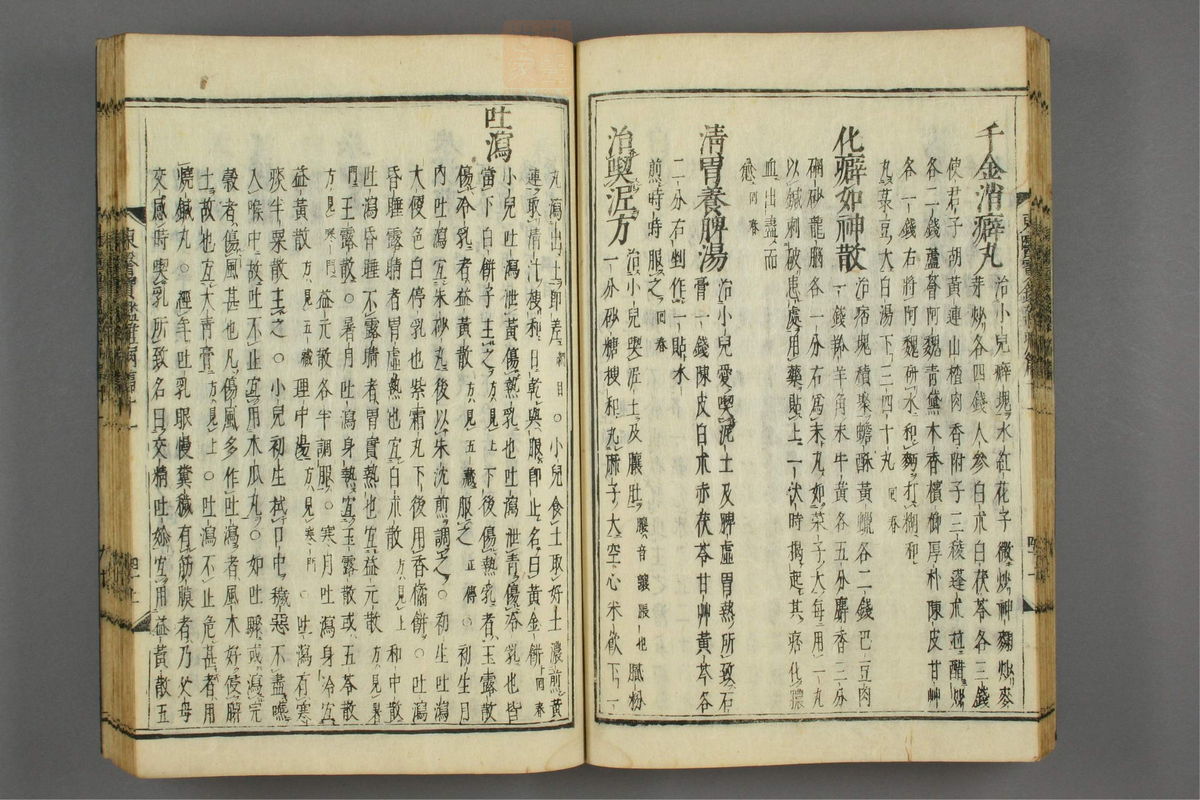 千金消癖丸 治小兒癖塊水紅花子微炒神麴炒麥
芽炒各四錢人參白朮白茯苓各三錢
使君子胡黃連山楂肉香附子三稜蓬朮並醋炒
各二錢蘆薈阿魏靑黛木香檳榔厚朴陳皮甘艸
各一錢右將阿魏硏水和麪打糊和
丸菉豆大白湯下三四十丸 回春
化癖如神散 治痞塊積聚蟾酥黃蠟各二錢巴豆肉
一錢羚羊角末牛黃各五分麝香三分
硇砂龍腦各一分右爲末丸如菜子大每用一丸
以鍼刺破患處用藥貼上一伏時揭起其痞化膿
血出盡而
愈 回春
淸胃養脾湯 治小兒愛喫泥土及脾虛胃熱所致石
膏一錢陳皮白朮赤茯苓甘艸黃芩各
二分右剉作一貼水
煎時時服之 回春
治喫泥方 治小兒喫泥土及臟肚 膩粉
一分砂糖搜和丸麻子大空心米飮下一
丸瀉出土卽差 ○小兒食土取好土濃煎黃
連取淸汁搜和日乾與服卽止名曰黃金餠 回春
吐瀉 小兒吐瀉泄黃傷熱乳也吐瀉泄靑傷冷乳也皆
當下白餠子主之 方見上 下後傷熱乳者玉露散
傷冷乳者益黃散 方見五藏 服之 正傳 ○初生月
內吐瀉宜朱砂丸後以朱沈煎調之○初生吐瀉
大便色白停乳也紫霜丸下後用香橘餠○吐瀉
昏睡露睛者胃虛熱也宜白朮散 方見上 和中散
吐瀉昏睡不露睛者胃實熱也宜益元散 方見暑
門 玉露散○暑月吐瀉身熱宜玉露散或五苓散
方見寒門 益元散各半調服○寒月吐瀉身冷宜
益黃散 方見五藏 理中湯 方見寒門 ○吐瀉有寒
痰半粟散主之○小兒初生拭口中穢惡不盡嚥
入喉中故吐不止宜用木瓜丸○如吐㵼或瀉完
穀者傷風甚也凡傷風多作吐瀉者風木好侵脾
土故也宜大靑膏 方見上 ○吐瀉不止危甚者用
燒鍼丸○經年吐乳眼慢糞穢有筋膜者乃父母
交感時喫乳所致名曰交精吐妳宜用益黃散五